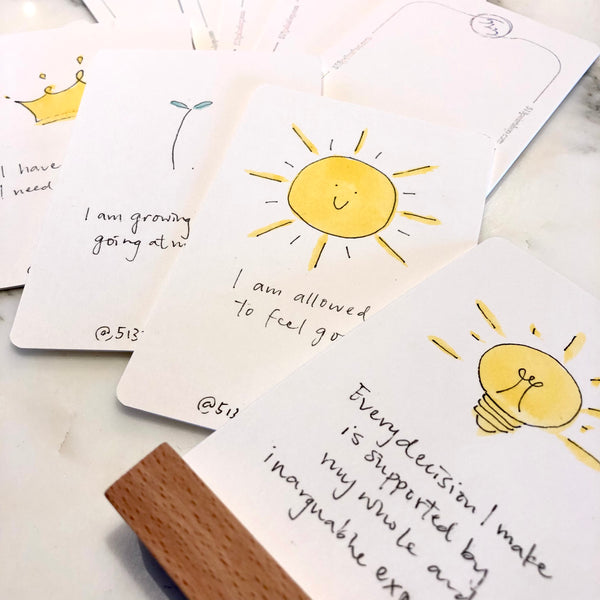 I have
I need
I am growing
going at m
@513
I am allowed
to feel go
@513
Every decision I make
is supported by
my whole and
inarguable exp